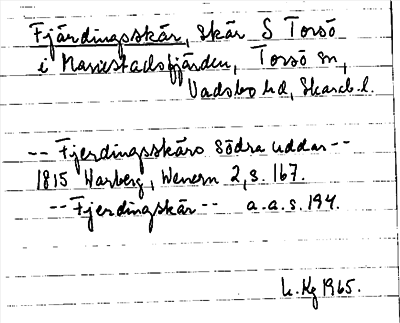 Fjärdingsskär, skär S Torsö
i Mariestadsfjärden, Torsö sn,
Vadsbo hd, Skarab. l.
-- Fjerdingsskärs Södra uddar --
1815 Warberg, Wenern 2, s. 167.
-- Fjerdingskär -- a.a.s. 194.
K. Kg 1965.